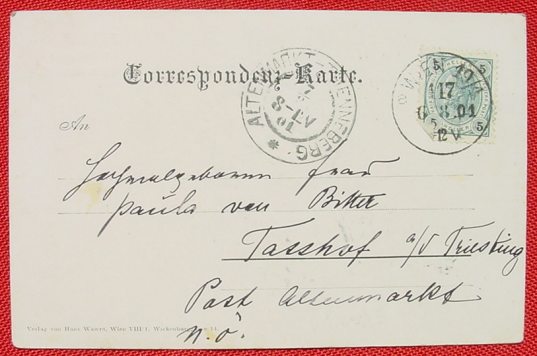 Correspondenz-Karte.
ALTENMARKT-THENNEBERG
8-
01
WIEN 10/1
17
6 8.01
12 V
5
An
Hochwolgeboren Frau
Paula von Bitter
Tasshof a/d Triesting
Post Altenmarkt
N. Ö.
Verlag von Hans Wawra, Wien VIII/1, Wickenburggasse 14.